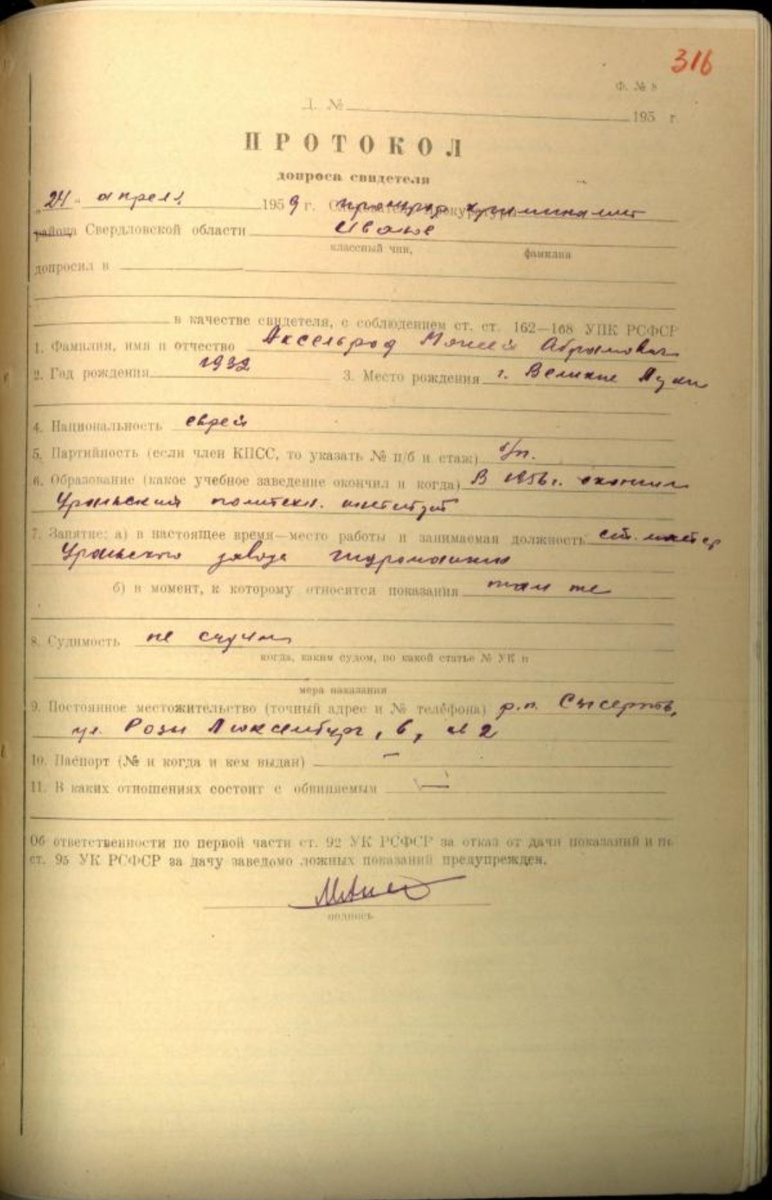 316
Ф. № 8
Д. № 195 г.
ПРОТОКОЛ
допроса свидетеля
„24" апреля 1959 г. прокурор криминалист
района Свердловской области Иванов
классный чин, фамилия
допросил в
в качестве свидетеля, с соблюдением ст. ст. 162—168 УПК РСФСР
1. Фамилия, имя и отчество Аксельрод Моисей Абрамович
2. Год рождения 1932 3. Место рождения г. Великие Луки
4. Национальность еврей
5. Партийность (если член КПСС, то указать № п/б и стаж) б/п.
6. Образование (какое учебное заведение окончил и когда) В 1956 г. окончил
Уральский политехн. институт
7. Занятие: а) в настоящее время—место работы и занимаемая должность ст. мастер
Уральского завода гидромашин
б) в момент, к которому относятся показания там же
8. Судимость не судим
когда, каким судом, по какой статье № УК и
мера наказания
9. Постоянное местожительство (точный адрес и № телефона) р.п. Сысерть,
ул. Розы Люксембург, 6, кв 2
10. Паспорт (№ и когда и кем выдан) —
11. В каких отношениях состоит с обвиняемым —
Об ответственности по первой части ст. 92 УК РСФСР за отказ от дачи показаний и по
ст. 95 УК РСФСР за дачу заведомо ложных показаний предупрежден.
подпись